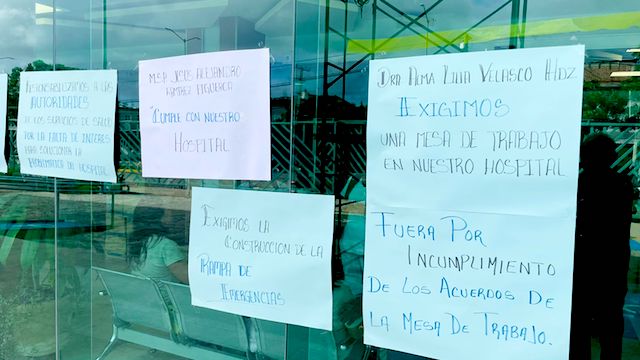 RESPONSABILIZAMOS A LAS
AUTORIDADES
DE LOS SERVICIOS DE SALUD
POR LA FALTA DE INTERES
PARA SOLUCIONAR LA
PROBLEMATICA DEL HOSPITAL
M.S.P. JESUS ALEJANDRO
RAMIREZ FIGUEROA
"CUMPLE CON NUESTRO
HOSPITAL
EXIGIMOS LA
CONSTRUCCION DE LA
RAMPA DE
EMERGENCIAS
DRA ALMA LILIA VELASCO HDZ.
EXIGIMOS
UNA MESA DE TRABAJO
EN NUESTRO HOSPITAL
FUERA POR
INCUMPLIMIENTO
DE LOS ACUERDOS DE
LA MESA DE TRABAJO.